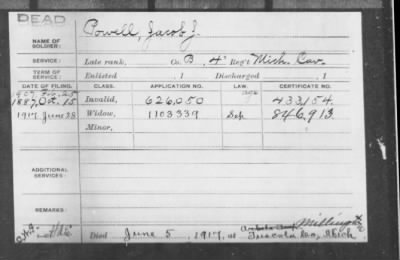 DEAD
NAME OF SOLDIER: Powell, Jacob J.
SERVICE: Late rank, Co. B, 4" Reg't Mich. Cav.
TERM OF SERVICE: Enlisted , 1 Discharged , 1
DATE OF FILING. CLASS. APPLICATION NO. LAW. CERTIFICATE NO.
1887, Oct. 15 Invalid, 626,050 433154.
1917 June 28 Widow, 1103339 846,913.
Minor,
ADDITIONAL SERVICES:
REMARKS:
Died June 5, 1917, at Tuscola Co, Mich
Millington